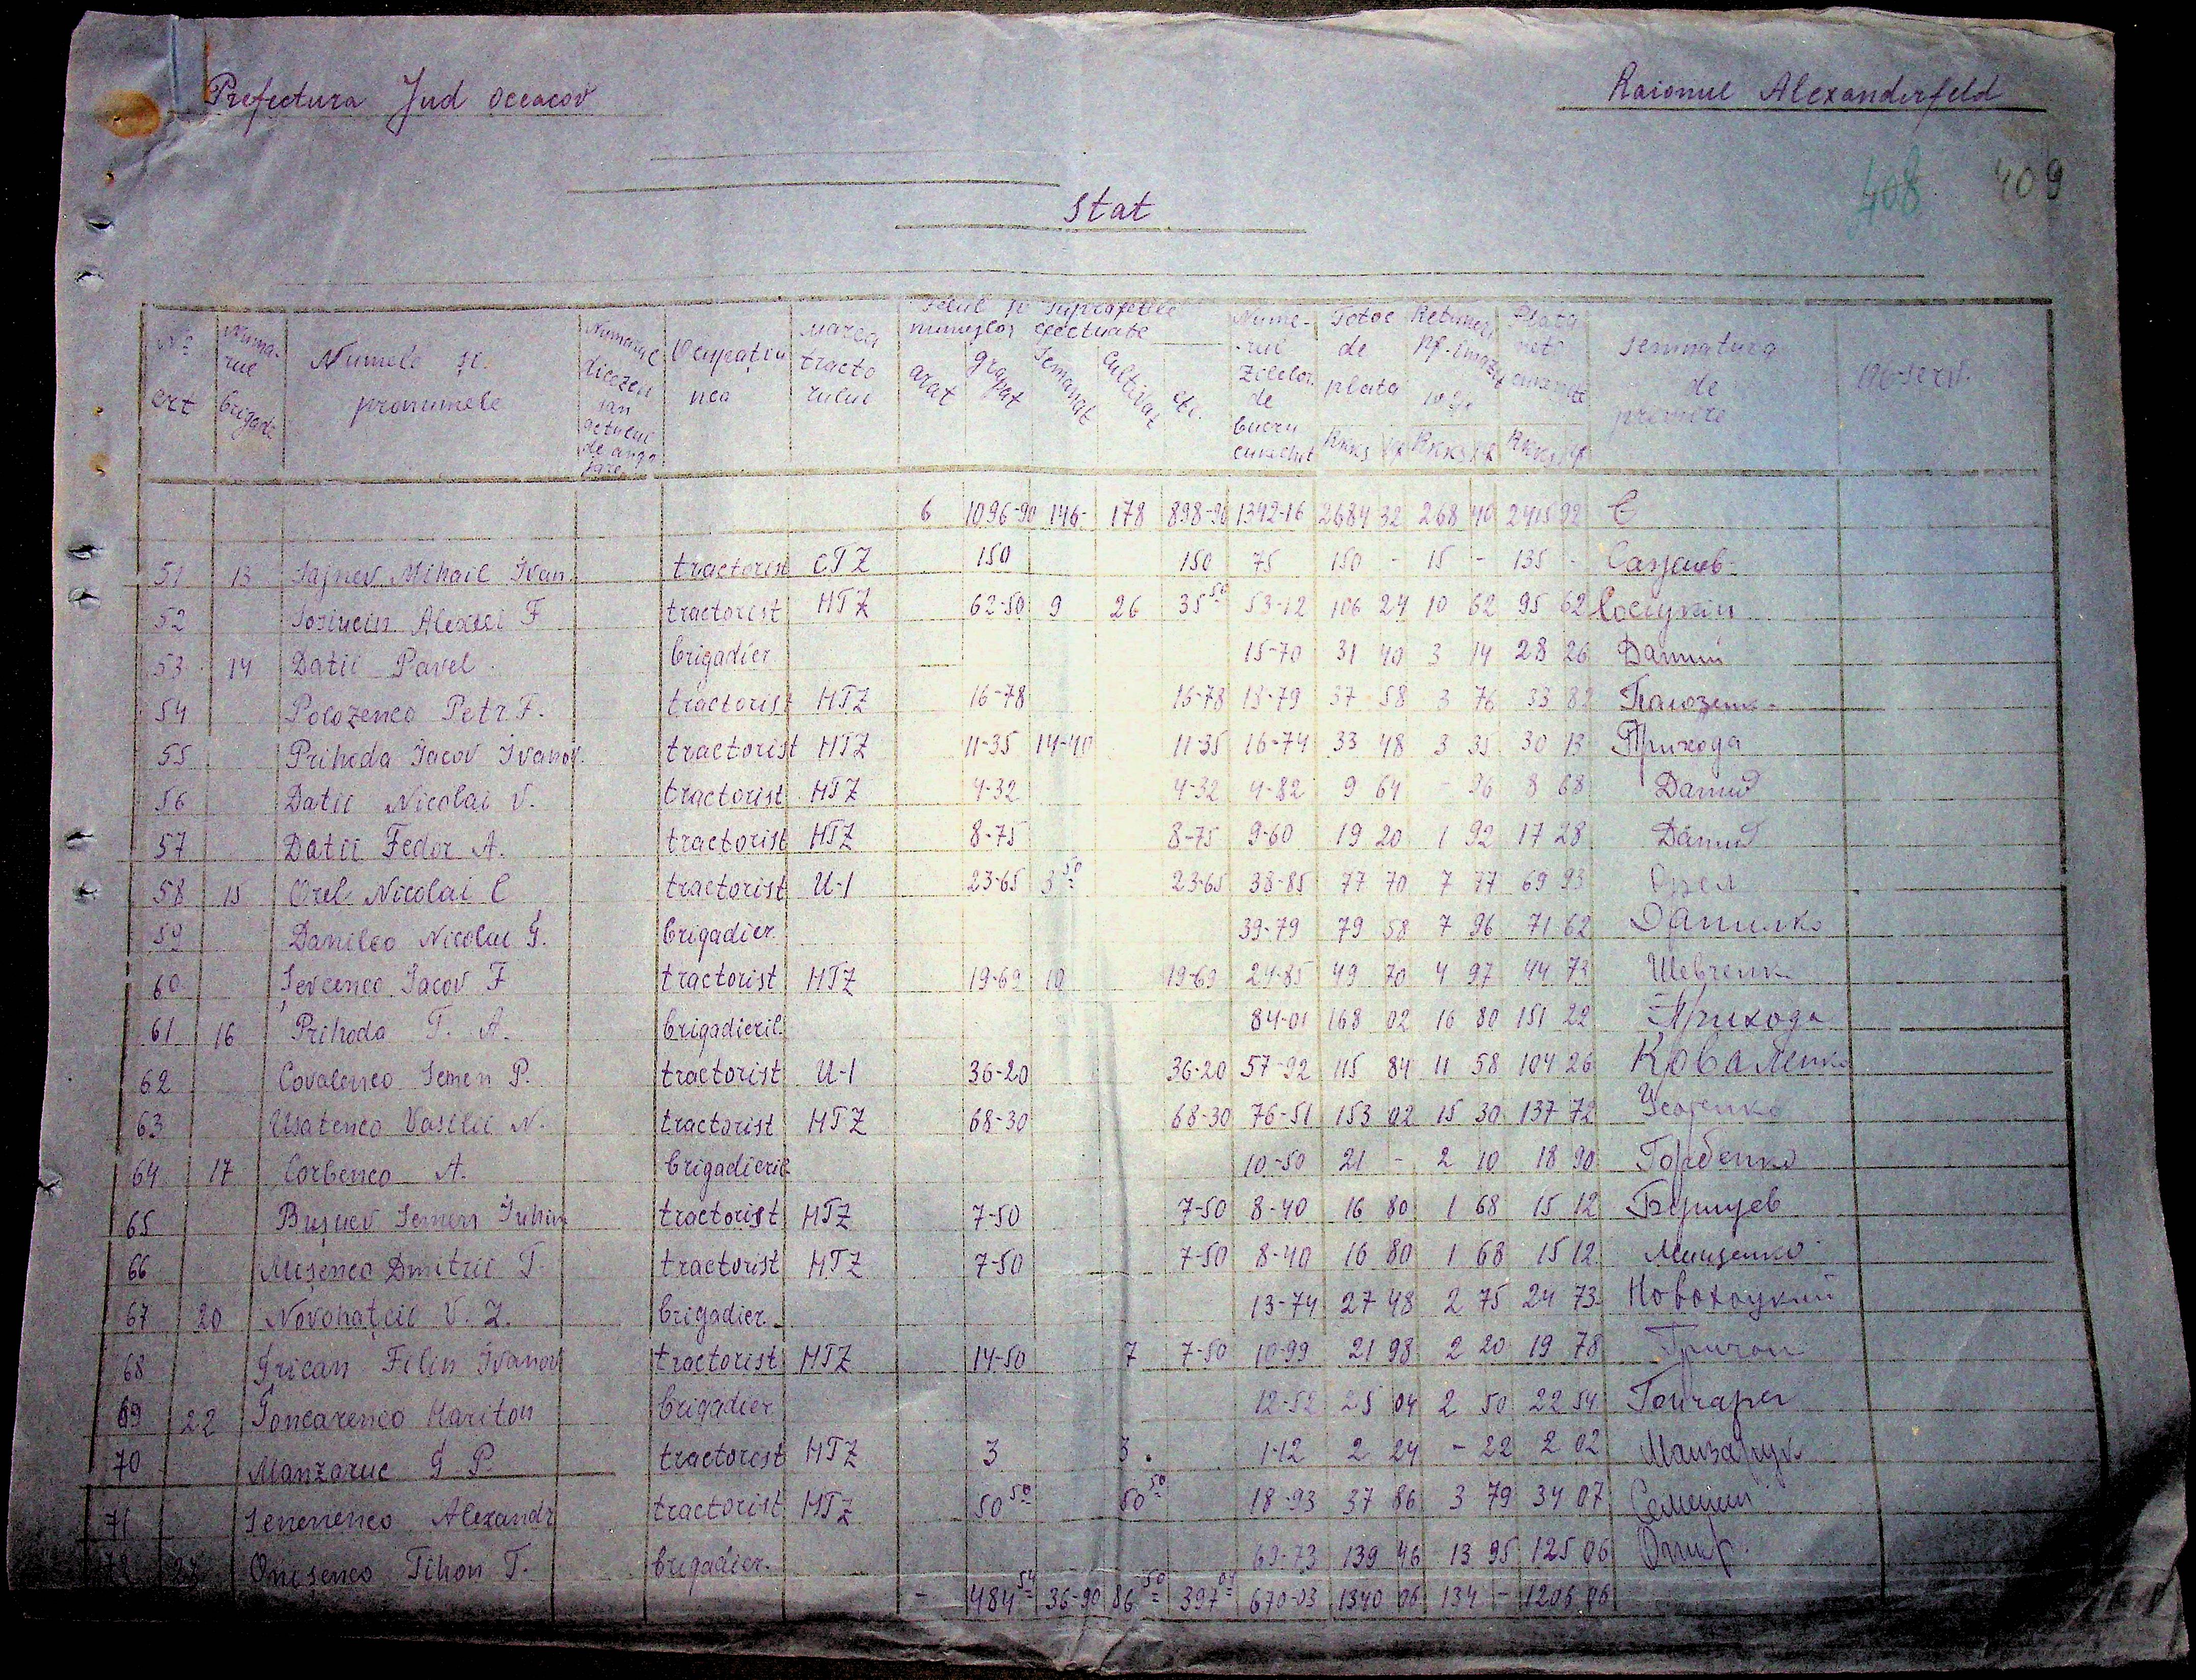 Prefectura Jud Oceacov
Raionul Alexanderfeld
408 409
Stat
Nr crt
Numa-rul brigade
Numele și pronumele
Numarul dicezei sau actului de anga jare
Ocupațiu nea
Marca tracto rului
Felul și suprafetile muncilor efectuate
arat grapat semanat Cultivat etc.
Nume-rul Zilelor de lucru
Total de plata Rkks rpf
Retineri 10% Rkks rpf
Plata neto Rkks rpf
semnatura de primire
observ.
6 1096-90 146- 178 898-90 1342-16 2684 32 268 40 2415 92 С
51 13 Sajnev Mihail Ivan. tractorist CTZ 150 150 75 150 - 15 - 135 - Сажнев
52 Sosiucin Alexei F tractorist HTZ 62-50 9 26 35 50 53-12 106 24 10 62 95 62 Сосюкин
53 14 Datii Pavel brigadier 15-70 31 40 3 14 28 26 Датий
54 Polozenco Petr F. tractorist HTZ 16-78 16-78 18-79 37 58 3 76 33 82
55 Prihoda Iacov Ivanov. tractorist HTZ 11-35 14-40 11-35 16-74 33 48 3 35 30 13 Приходa
56 Datii Nicolai V. tractorist HTZ 4-32 4-32 4-82 9 64 - 96 8 68 Датий
57 Datii Fedor A. tractorist HTZ 8-75 8-75 9-60 19 20 1 92 17 28 Датий
58 15 Orel Nicolai C tractorist U-1 23-65 3 50 23-65 38-85 77 70 7 77 69 93 Орел
59 Danilco Nicolai G. brigadier 39-79 79 58 7 96 71 62 Данилко
60 Șevcenco Iacov F tractorist HTZ 19-69 10 19-69 24-85 49 70 4 97 44 73 Шевченк
61 16 Prihoda T. A. brigadieril 84-01 168 02 16 80 151 22 Приходa
62 Covalenco Semen P. tractorist U-1 36-20 36-20 57-92 115 84 11 58 104 26 Коваленко
63 Usatenco Vasilii N. tractorist HTZ 68-30 68-30 76-51 153 02 15 30 137 72 Усатенко
64 17 Corbenco A. brigadieril 10-50 21 - 2 10 18 90 Горбенко
65 Bușuev Semen Iuhim tractorist HTZ 7-50 7-50 8-40 16 80 1 68 15 12 Бушуев
66 Mișenco Dmitrii T. tractorist HTZ 7-50 7-50 8-40 16 80 1 68 15 12 Мищенко
67 20 Novohațcii V. Z. brigadier 13-74 27 48 2 75 24 73 Новохацкий
68 Grican Filin Ivanov tractorist HTZ 14-50 7 7-50 10-99 21 98 2 20 19 78 Гричан
69 22 Goncarenco Hariton brigadier 12-52 25 04 2 50 22 54 Гончарен
70 Manzaruc G P tractorist HTZ 3 3. 1-12 2 24 - 22 2 02 Манзарук
71 Semenenco Alexandr tractorist HTZ 50 50 50 50 18-93 37 86 3 79 34 07 Семенен
72 Onișenco Tihon T. brigadier. 69-73 139 46 13 95 125 06
- 484 54 36-90 86 50 397 04 670-03 1340 06 134 - 1206 06